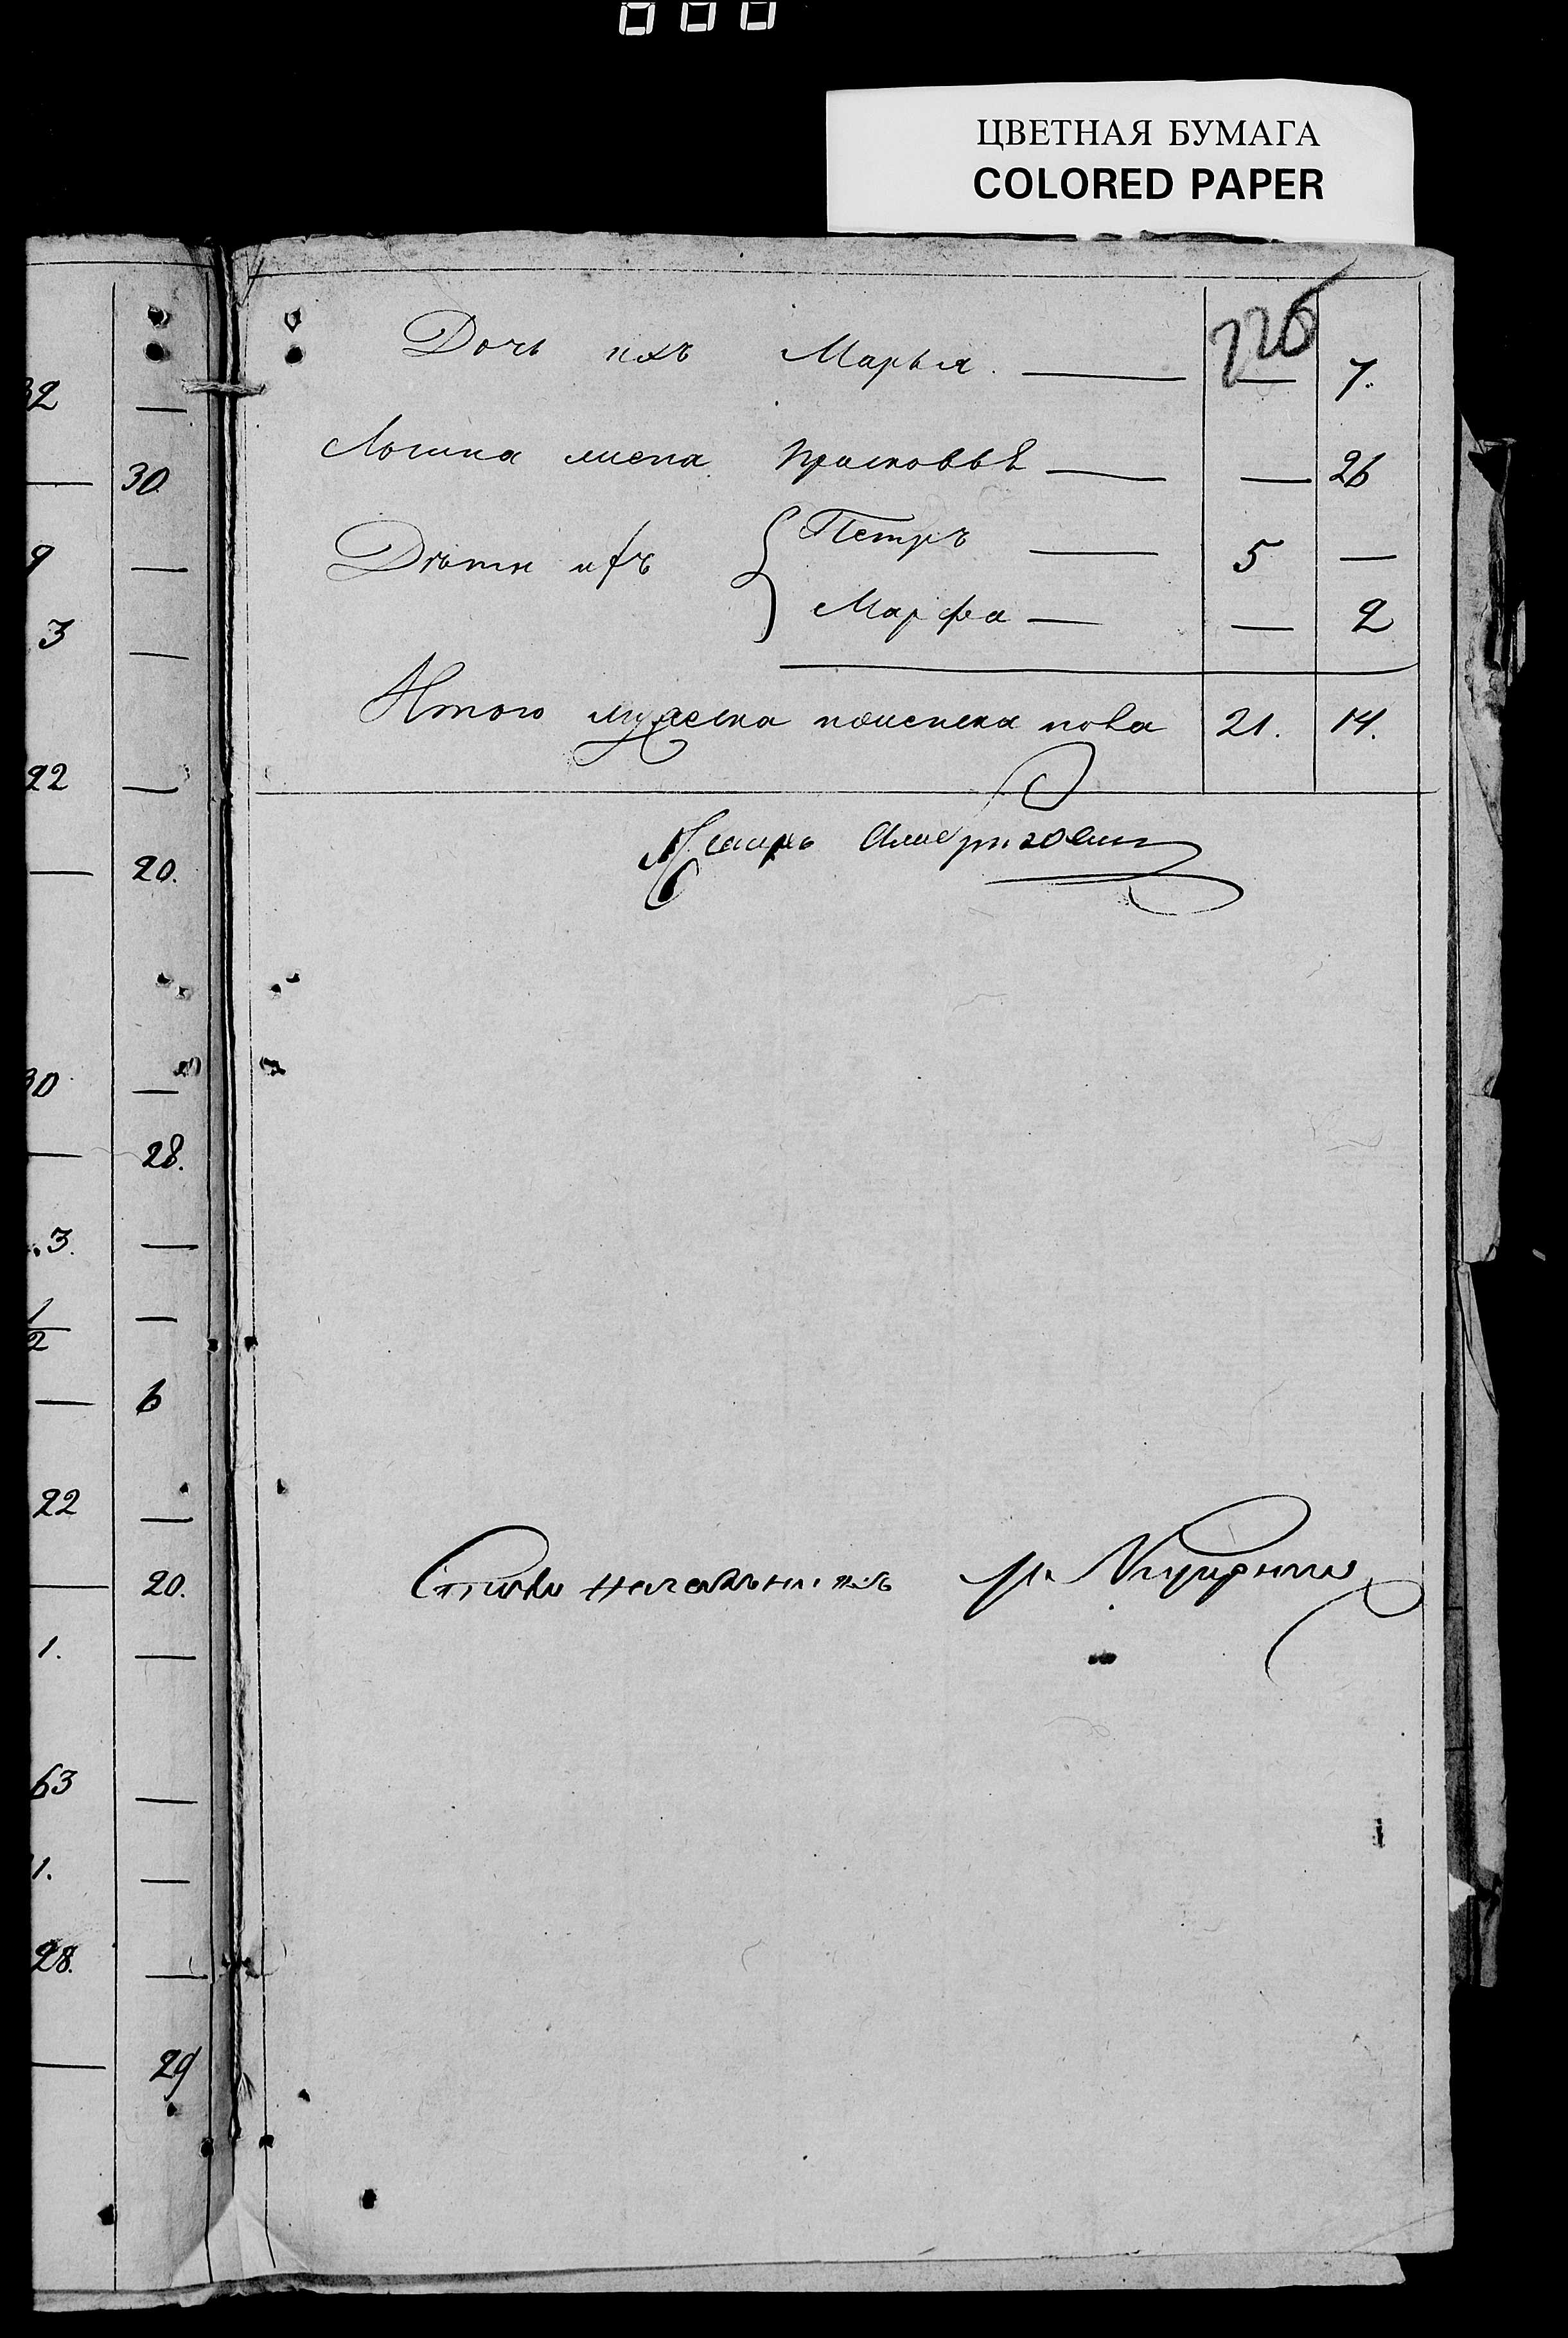 ЦВЕТНАЯ БУМАГА
COLORED PAPER
226
Дочь ихъ Марья. — — 7.
жена Прасковья — — 26
Дѣти ихъ { Петръ — 5 —
Марфа — — 2
Итого мужеска и женска пола 21. 14.
Столоначальникъ
32 —
— 30.
9 —
3 —
22 —
— 20.
30 —
— 28.
3. —
1/2 —
— 6
22 —
— 20.
1. —
63 —
1. —
28. —
— 29